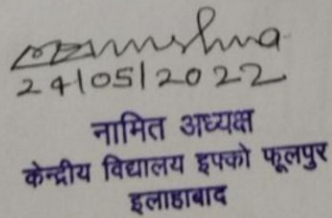 24/05/2022
नामित अध्यक्ष
केन्द्रीय विद्यालय इफ्को फूलपुर
इलाहाबाद